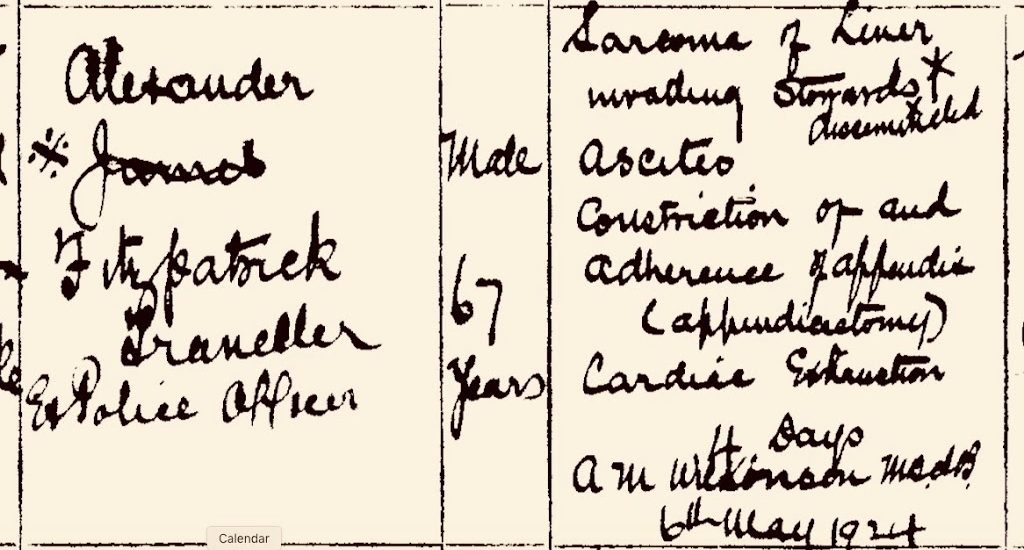 Alexander
※ James
Fitzpatrick
Traveller
Ex Police Officer
Male
67
Years
Sarcoma of Liver
invading Stomach *
disseminated
Ascites
Constriction of and
adherence of appendix
(appendicostomy)
Cardiac Exhaustion
4 Days
A M Wilkinson
6th May 1924
Calendar